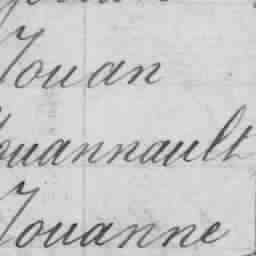 Jouan
Jouannault
Jouanne